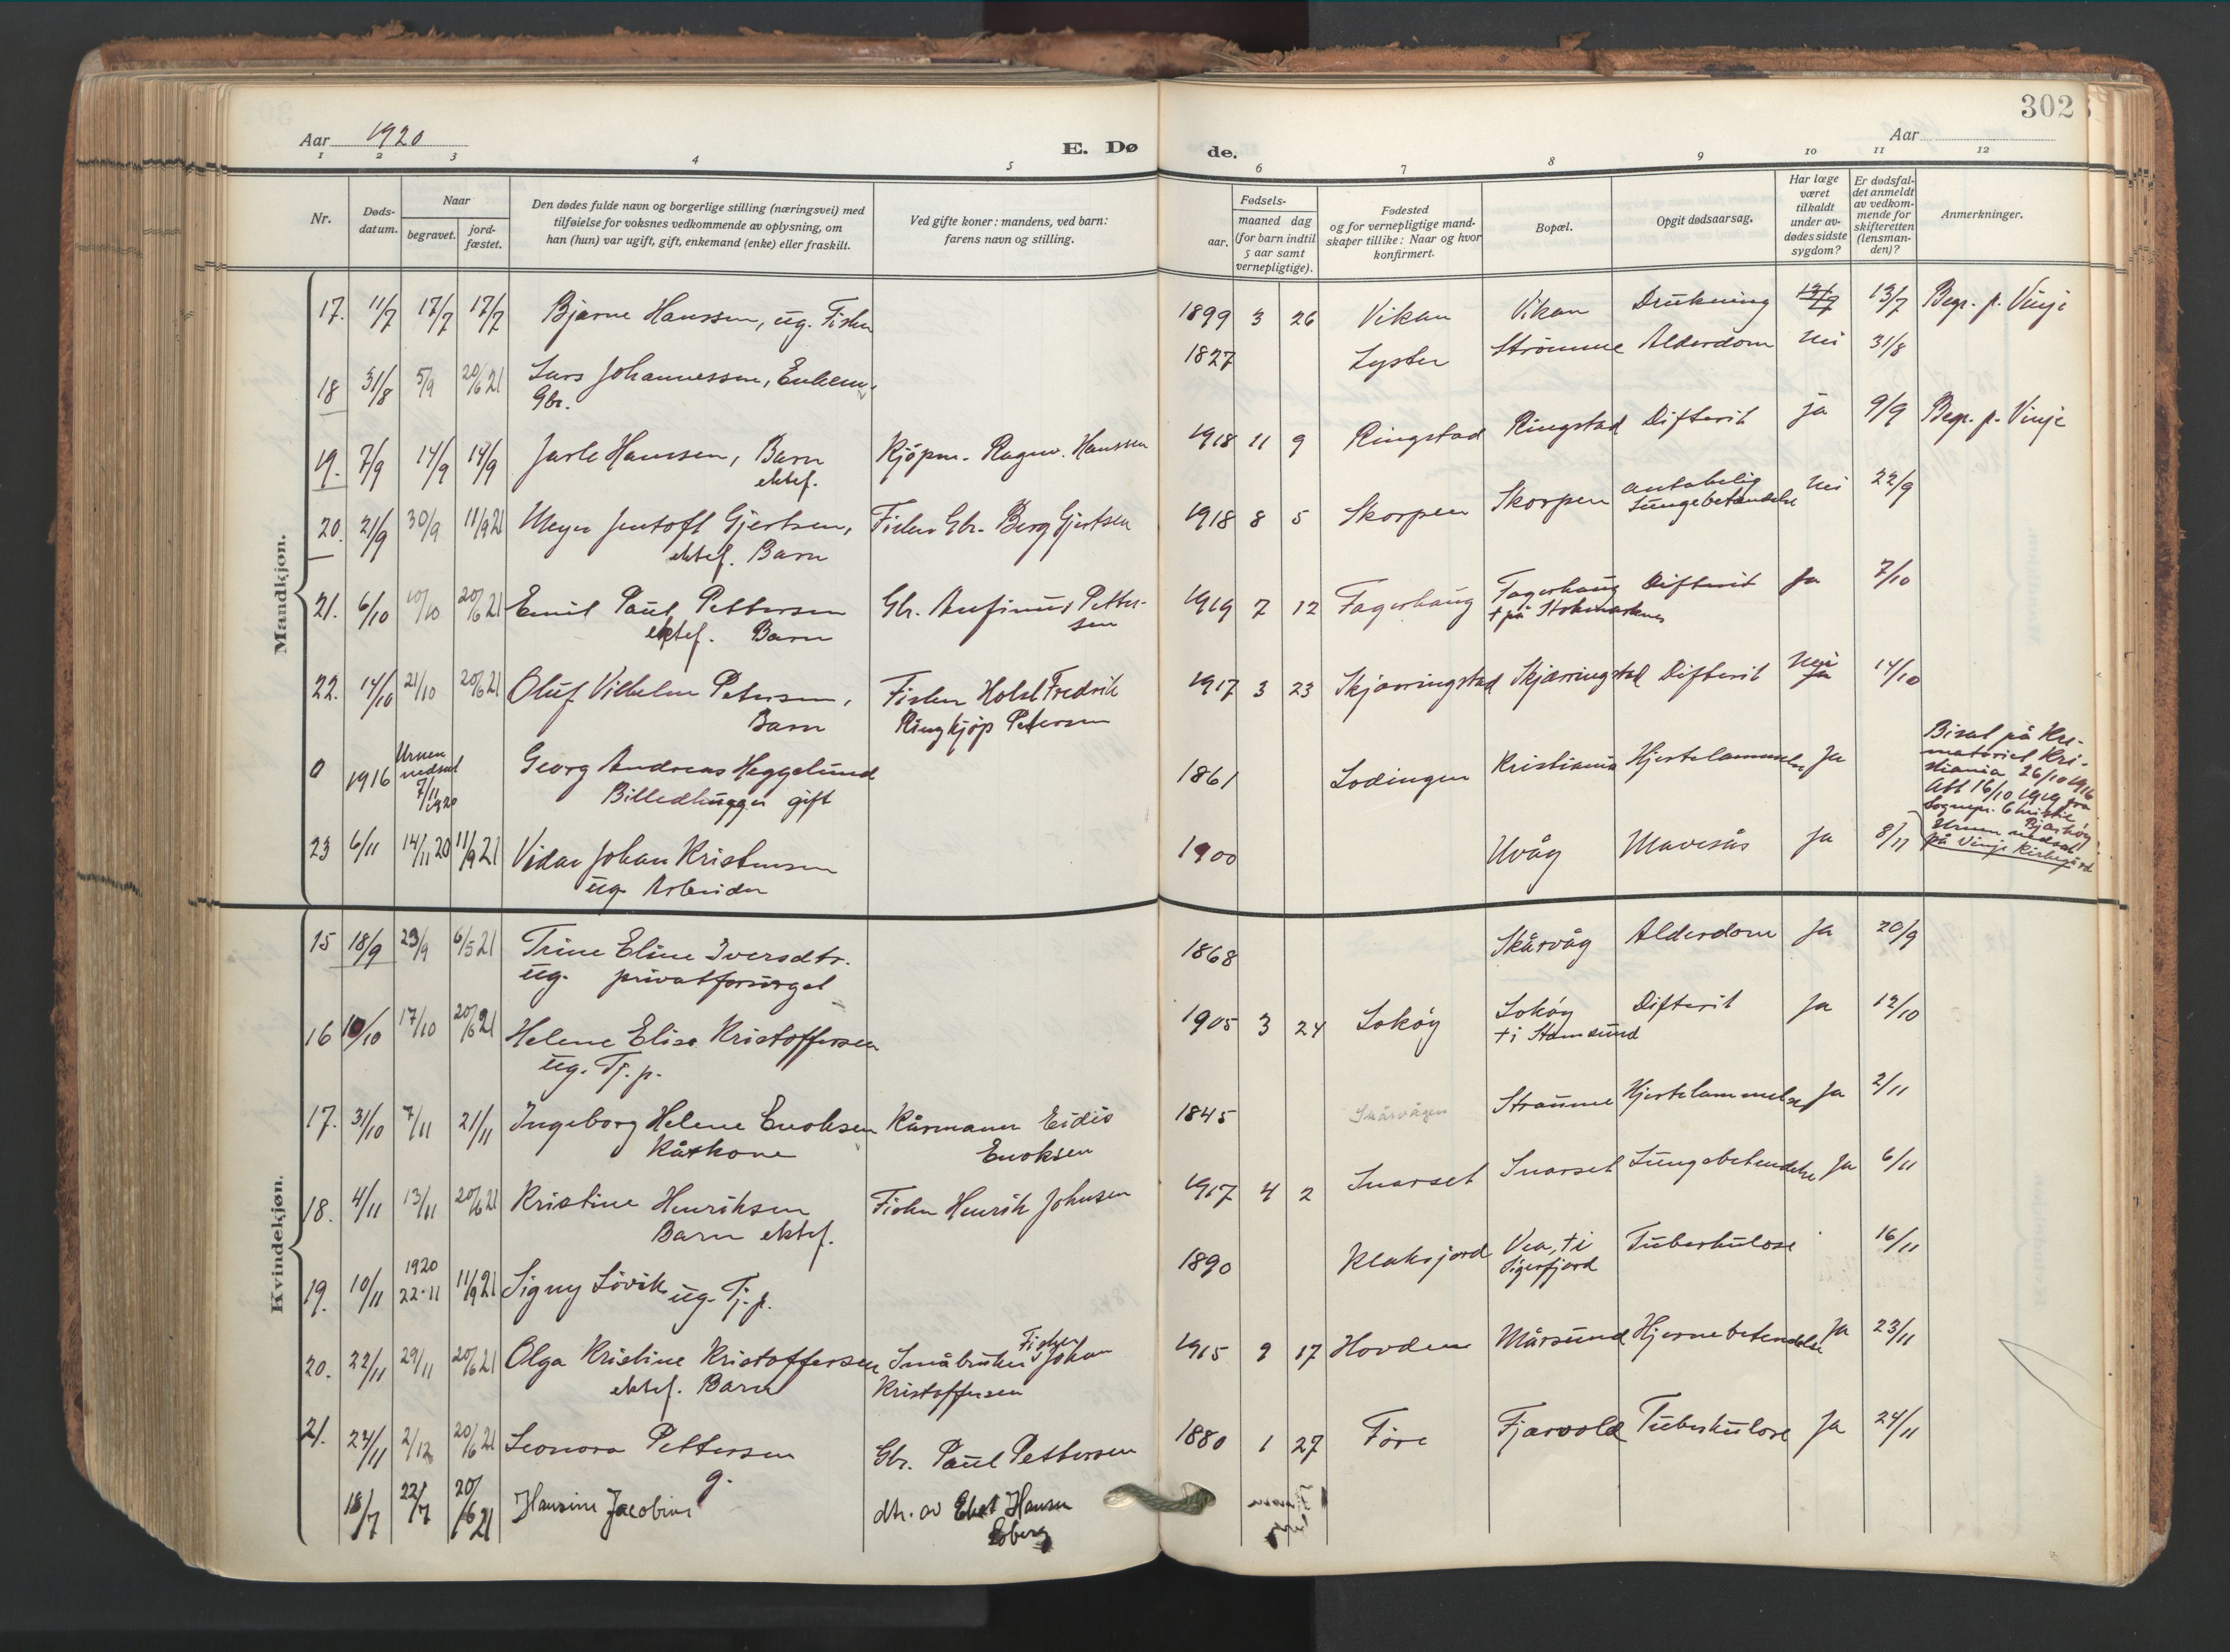 302
Aar 1920 E. Dø de. Aar
1 2 3 4 5 6 7 8 9 10 11 12
Nr.
Døds-
datum.
Naar
begravet.
jord-
fæstet.
Den dødes fulde navn og borgerlige stilling (næringsvei) med
tilføielse for voksnes vedkommende av oplysning, om
han (hun) var ugift, gift, enkemand (enke) eller fraskilt.
Ved gifte koner: mandens, ved barn:
farens navn og stilling.
Fødsels-
aar.
maaned dag
(for barn indtil
5 aar samt
vernepligtige).
Fødested
og for vernepligtige mand-
skaper tillike: Naar og hvor
konfirmert.
Bopæl.
Opgit dødsaarsag.
Har læge
været
tilkaldt
under av-
dødes sidste
sygdom?
Er dødsfal-
det anmeldt
av vedkom-
mende for
skifteretten
(lensman-
den)?
Anmerkninger.
Mandkjøn.
17. 11/7 17/7 17/7 Bjarne Hanssen, ug. Fisker 1899 3 26 Vikan Vikan Drukning 13/7 Begr. p. Vinje
18 31/8 5/9 20/6 21 Lars Johannessen, Enkem. 1827 Lyster Strømme Alderdom nei 31/8
Gbr.
19. 7/9 14/9 14/9 Jarle Hanssen, Barn Kjøpm. Ragnv. Hanssen 1918 11 9 Ringstad Ringstad Difterit ja 9/9 Begr. p. Vinje
ektef.
20. 21/9 30/9 11/9 21 Meyer Jentoft Gjertsen, Fisker Gbr. Berg Gjertsen 1918 8 5 Skorpen Skorpen antakelig nei 22/9
ektef. Barn Lungebetændelse
21. 6/10 10/10 20/6 21 Emil Paul Pettersen Gbr. Anfinus Petter- 1919 7 12 Fagerhaug Fagerhaug Difterit Ja 7/10
ektef. Barn sen † på Stokmarknes
22. 14/10 21/10 20/6 21 Oluf Vilhelm Petersen, Fisker Holst Fredrik 1917 3 23 Skjærringstad Skjærringstad Difterit Nei Ja 14/10
Barn Ringkjøp Petersen
0 1916 Urnen
nedsat
7/11 1920 Georg Andreas Heggelund 1861 Lodingen Kristiania Hjertelammelse Ja
Billedhugger gift
Bisat på Kre-
matoriet Kri-
stiania 26/10 1916
Att 16/10 1919 fra
Sognepr. Christie
Urnen nedsat
på Vinje Kirkegård
23 6/11 14/11 20 11/9 21 Vidar Johan Kristensen 1900 Uvåg Mavesås Ja 8/11
ug. Arbeider
Kvindekjøn.
15 18/9 23/9 6/5 21 Trine Eline Iversdtr. 1868 Skårvåg Alderdom Ja 20/9
ug. privatforsørget
16 10/10 17/10 20/6 21 Helene Elise Kristoffersen 1905 3 24 Lokøy Lokøy Difterit Ja 12/10
ug. Tj. p. † i Stamsund
17. 31/10 7/11 21/11 Ingeborg Helene Enoksen Kårmann Eidis 1845 Skårvågen Straume Hjertelammelse Ja 2/11
Kårkone Enoksen
18. 4/11 13/11 20/6 21 Kristine Henriksen Fisker Henrik Johnsen 1917 4 2 Snarset Snarset Lungebetendelse Ja 6/11
Barn ektef.
19. 10/11 1920
22-11 11/9 21 Signy Løvik ug. Tj. p. 1890 Klaksjord Vea, † i Tuberkulose 16/11
Sigerfjord
20. 22/11 29/11 20/6 21 Olga Kristine Kristoffersen Småbruker Fisker Johan 1915 9 17 Hovden Mårsund Hjernebetendelse Ja 23/11
ektef. Barn Kristoffersen
21. 24/11 2/12 20/6 21 Leonora Pettersen Gbr. Paul Pettersen 1880 1 27 Føre Fjærvold Tuberkulose Ja 24/11
g.
18/7 22/7 20/6 21 Hansine Jacobine dtr. av Hansen